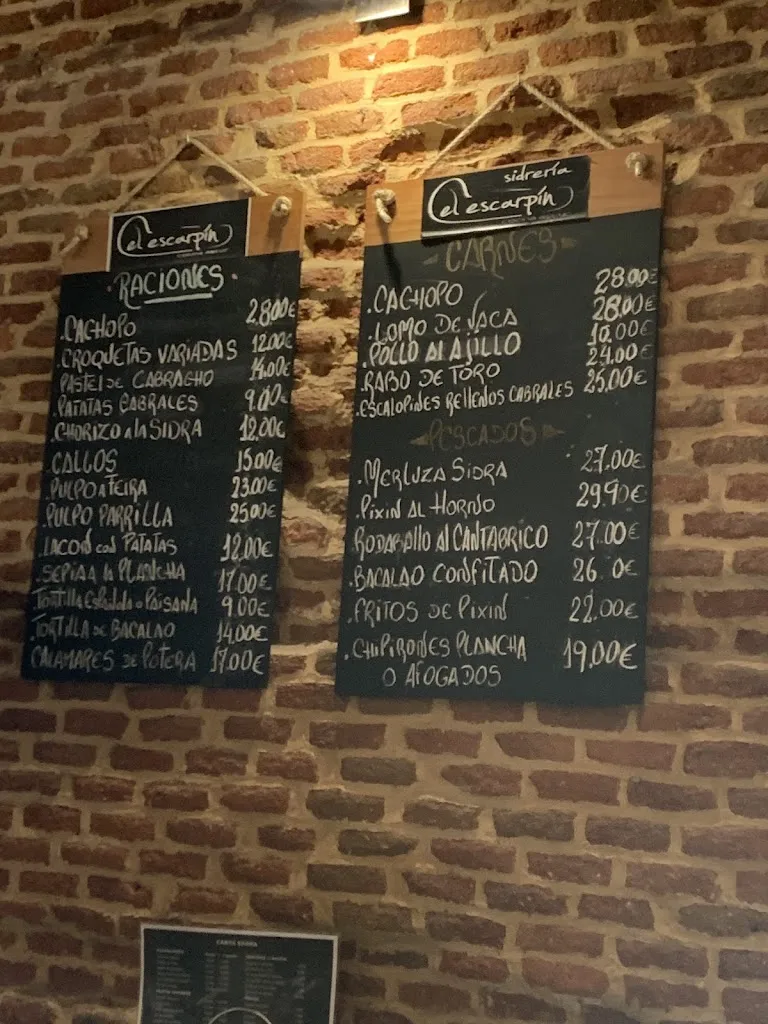 el escarpín
RACIONES
.CACHOPO 28.00€
.CROQUETAS VARIADAS 12.00€
.PASTEL DE CABRACHO 14.00€
.PATATAS CABRALES 9.00€
.CHORIZO A LA SIDRA 12.00€
.CALLOS 15.00€
.PULPO A FEIRA 23.00€
.PULPO PARRILLA 25.00€
.LACON CON PATATAS 12.00€
.SEPIA A LA PLANCHA 17.00€
TORTILLA ESPAÑOLA o PAISANA 9.00€
.TORTILLA DE BACALAO 14.00€
CALAMARES DE POTERA 17.00€
sidrería
el escarpín
CARNES
.CACHOPO 28.00€
.LOMO DE VACA 28.00€
.POLLO AL AJILLO 10.00€
.RABO DE TORO 24.00€
.ESCALOPINES RELLENOS CABRALES 25.00€
PESCADOS
.MERLUZA SIDRA 27.00€
.PIXIN AL HORNO 29.90€
RODABALLO AL CANTABRICO 27.00€
.BACALAO CONFITADO 26. 0€
.FRITOS DE PIXIN 22.00€
.CHIPIRONES PLANCHA 19.00€
O AFOGADOS